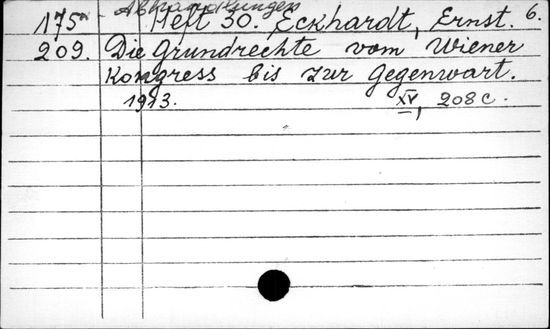 Abhandlungen 6.
175a Heft 30. Eckhardt, Ernst.
209. Die Grundrechte vom Wiener
Kongress bis zur Gegenwart.
1913. XV, 208 c.